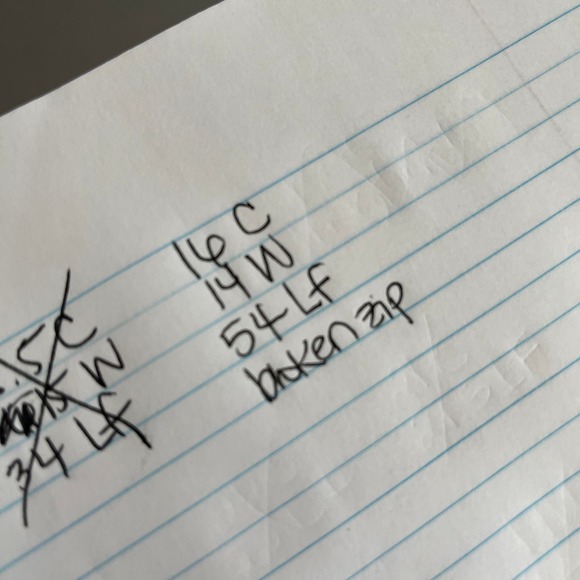 16 C
14 W
54 LF
broken zip
.5 C
15 W
34 LF